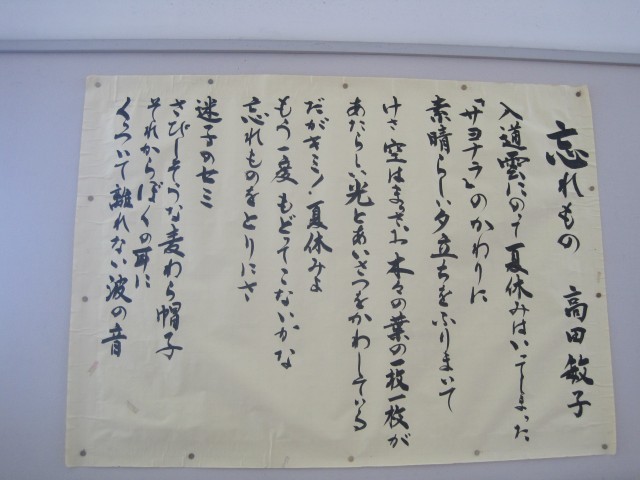 忘れもの　高田敏子
入道雲にのって夏休みはいってしまった
「サヨナラ」のかわりに
素晴らしい夕立ちをふりまいて
けさ空はまっさお木々の葉の一枚一枚が
あたらしい光とあいさつをかわしている
だがキミ！夏休みよ
もう一度もどってこないかな
忘れものをとりにさ
迷子のセミ
さびしそうな麦わら帽子
それからぼくの耳に
くっついて離れない波の音